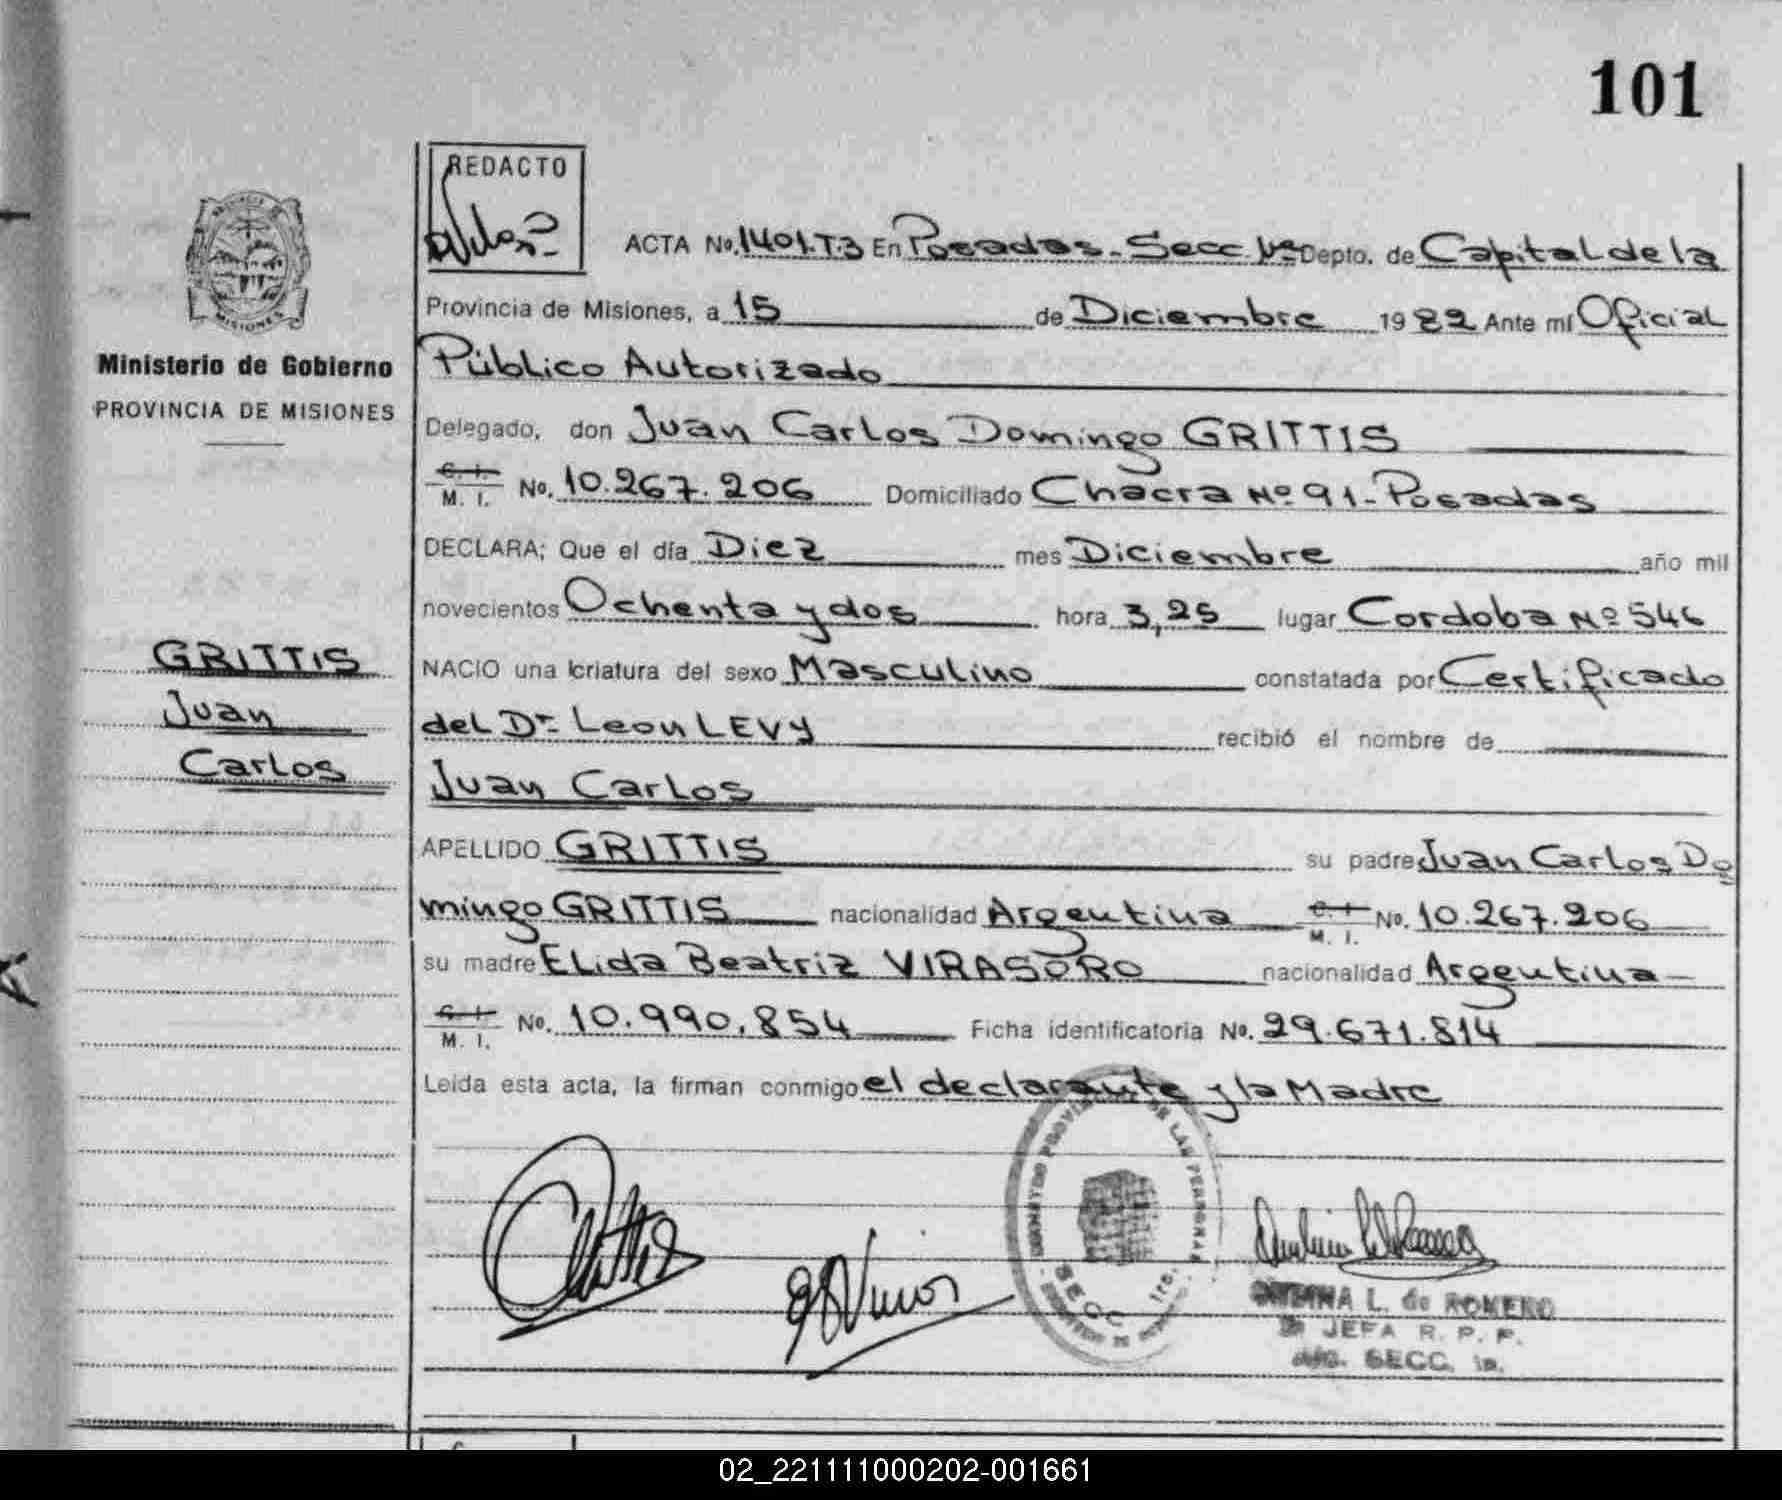 101
REDACTO
ACTA No. 1401.T.3 En Posadas - Secc 1ª Depto. de Capital de la
Provincia de Misiones, a 15 de Diciembre 1982 Ante mí Oficial
Público Autorizado
Delegado, don Juan Carlos Domingo GRITTIS
C. I. M. I. No. 10.267.206 Domiciliado Chacra Nº 91 - Posadas
DECLARA; Que el día Diez mes Diciembre año mil
novecientos Ochenta y dos hora 3,25 lugar Cordoba Nº 546
NACIO una criatura del sexo Masculino constatada por Certificado
del Dr. Leon LEVY recibió el nombre de
Juan Carlos
APELLIDO GRITTIS su padre Juan Carlos Do
mingo GRITTIS nacionalidad Argentina C. I. M. I. No. 10.267.206
su madre ELida Beatriz VIRASORO nacionalidad Argentina -
C. I. M. I. No. 10.990.854 Ficha identificatoria No. 29.671.814
Leída esta acta, la firman conmigo el declarante y la Madre
MISIONES
Ministerio de Gobierno
PROVINCIA DE MISIONES
GRITTIS
Juan
Carlos
DE LAS PERSONAS
SECC 1ra.
L. de ROMERO
JEFA R. P. P.
SECC. 1a.
02_221111000202-001661